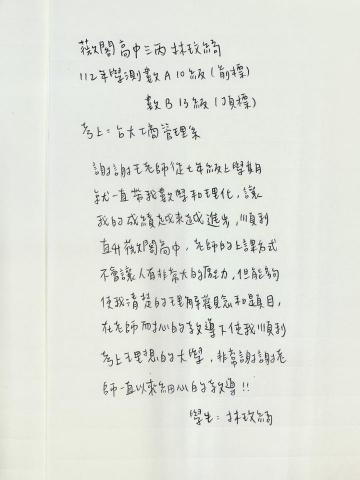 薇閣高中三丙 林玟綺
112年學測數A 10級(前標)
數B 13級(頂標)
考上：台大工商管理系
謝謝王老師從七年級上學期
就一直帶我數學和理化，讓
我的成績越來越進步，順利
直升薇閣高中，老師的上課方式
不會讓人有非常大的壓力，但能夠
使我清楚的理解觀念和題目，
在老師耐心的教導下使我順利
考上理想的大學，非常謝謝老
師一直以來細心的教導!!
學生：林玟綺